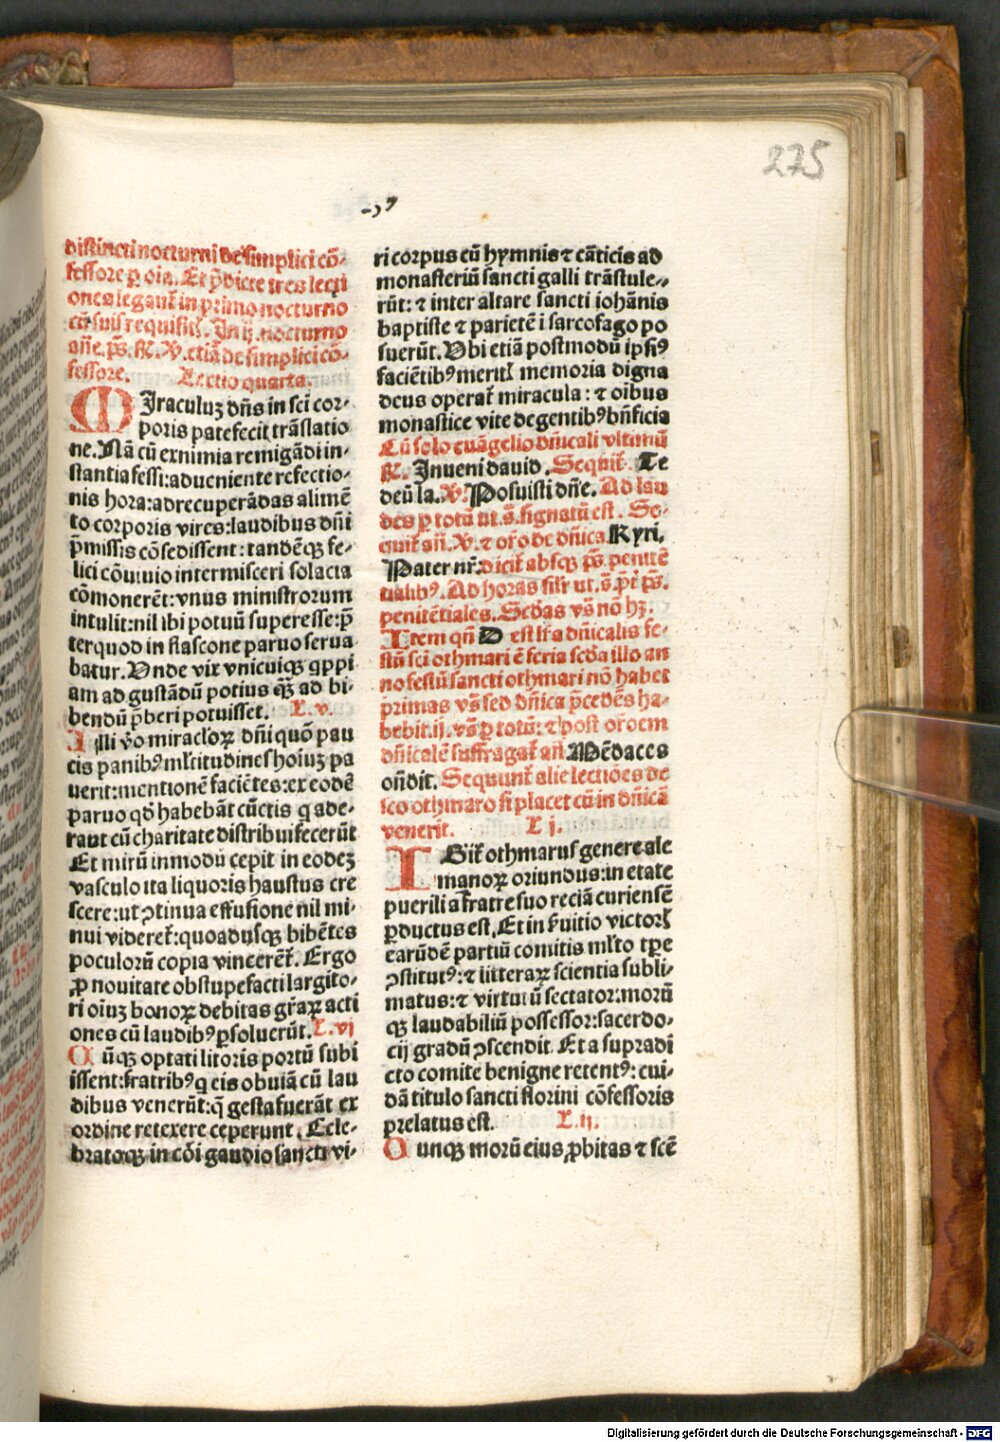 275
distincti nocturni de simplici cō-
fessore ꝑ oīa. Et p̄dicte tres lecti
ones legant᷑ in primo nocturno
cū suis requisitis. In ij. nocturno
añe. p̄s. ℟. ℣. etiā de simplici cō-
fessore. Lectio quarta.
MIraculuꝫ dn̄s in sci cor-
poris patefecit trāslatio
ne. Nā cū eximia remigādi in-
stantia fessi: adueniente refectio-
nis hora: ad recuperādas alimē
to corporis vires: laudibus dn̄i
p̄missis cōsedissent: tandēqꝫ fe-
lici cōuiuio intermisceri solacia
cōmonerēt: vnus ministrorum
intulit: nil ibi potuū superesse: p̄
terquod in flascone paruo serua
batur. Vnde vix vnicuiqꝫ ꝓppi
am ad gustādū potius qꝫ̄ ad bi-
bendū p̄beri potuisset. L. v.
Illi v̄o miraclōꝝ dn̄i quō pau
cis panibꝰ ml̄titudines hoīuꝫ pa
uerit: mentionē faciētes: ex eodē
paruo qd̄ habebāt cūctis q ade-
rant cū charitate distribui fecerūt
Et mirū inmodū cepit in eodeꝫ
vasculo ita liquoris haustus cre
scere: ut ↄtinua effusione nil mi-
nui videret᷑: quoadusqꝫ bibētes
poculorū copia vinceret᷑. Ergo
ꝓ nouitate obstupefacti largito-
ri oīuꝫ bonoꝝ debitas gr̄aꝝ acti
ones cū laudibꝰ ꝑsoluerūt. L. vj
Cūqꝫ optati litoris portū subi
issent: fratribꝰ q eis obuiā cū lau
dibus venerūt: q̄ gesta fuerāt ex
ordine retexere ceperunt. Cele-
bratoqꝫ in cōi gaudio sancti vi-
ri corpus cū hymnis ⁊ cāticis ad
monasteriū sancti galli trāstule-
rūt: ⁊ inter altare sancti iohānis
baptiste ⁊ parietē i sarcofago po
suerūt. Vbi etiā postmodū ipsiꝰ
faciētibꝰ meritl memoria digna
deus operat᷑ miracula: ⁊ oībus
monastice vite degentibꝰ bn̄ficia
Cū solo euāgelio dn̄icali vltimū
℟. Inueni dauid. Sequit᷑. Te
deū la. ℣. Posuisti dn̄e. Ad lau
des ꝑ totū ut. s̄. signatū est. Se-
quit᷑ añ. ℣. ⁊ or̄o de dn̄ica. Kyri.
Pater nr̄. dicit᷑ absqꝫ p̄s. penitē
tialibꝰ. Ad horas silr̄ ut. s̄. p̄t p̄s.
penitētiales. Scd̄as vs̄ nō hꝫ.
Item qn̄ D est lr̄a dn̄icalis fe-
stū sci othmari ē feria scd̄a illo an
no festū sancti othmari nō habet
primas vs̄ sed dn̄ica p̄cedēs ha-
bebit. ij. vs̄ ꝑ totū: ⁊ post or̄oem
dn̄icalē suffragat᷑ añ. Mēdaces
on̄dit. Sequunt᷑ alie lectiōes de
sco othmaro si placet cū in dn̄icā
venerit. L. j.
IGit᷑ othmarus genere ale
manoꝝ oriundus: in etate
puerili a fratre suo reciā curiensē
ꝑductus est. Et in ẜuitio victorꝭ
earūdē partiū comitis ml̄to tꝑe
ↄstitutꝰ: ⁊ litteraꝝ scientia subli-
matus: ⁊ virtutū sectator: morū
qꝫ laudabiliū possessor: sacerdo-
cij gradū ↄscendit. Et a supradi
cto comite benigne retentꝰ: cui-
dā titulo sancti florini cōfessoris
prelatus est. L. ij.
Cunqꝫ morū eius ꝓbitas ⁊ scē
Digitalisierung gefördert durch die Deutsche Forschungsgemeinschaft - DFG